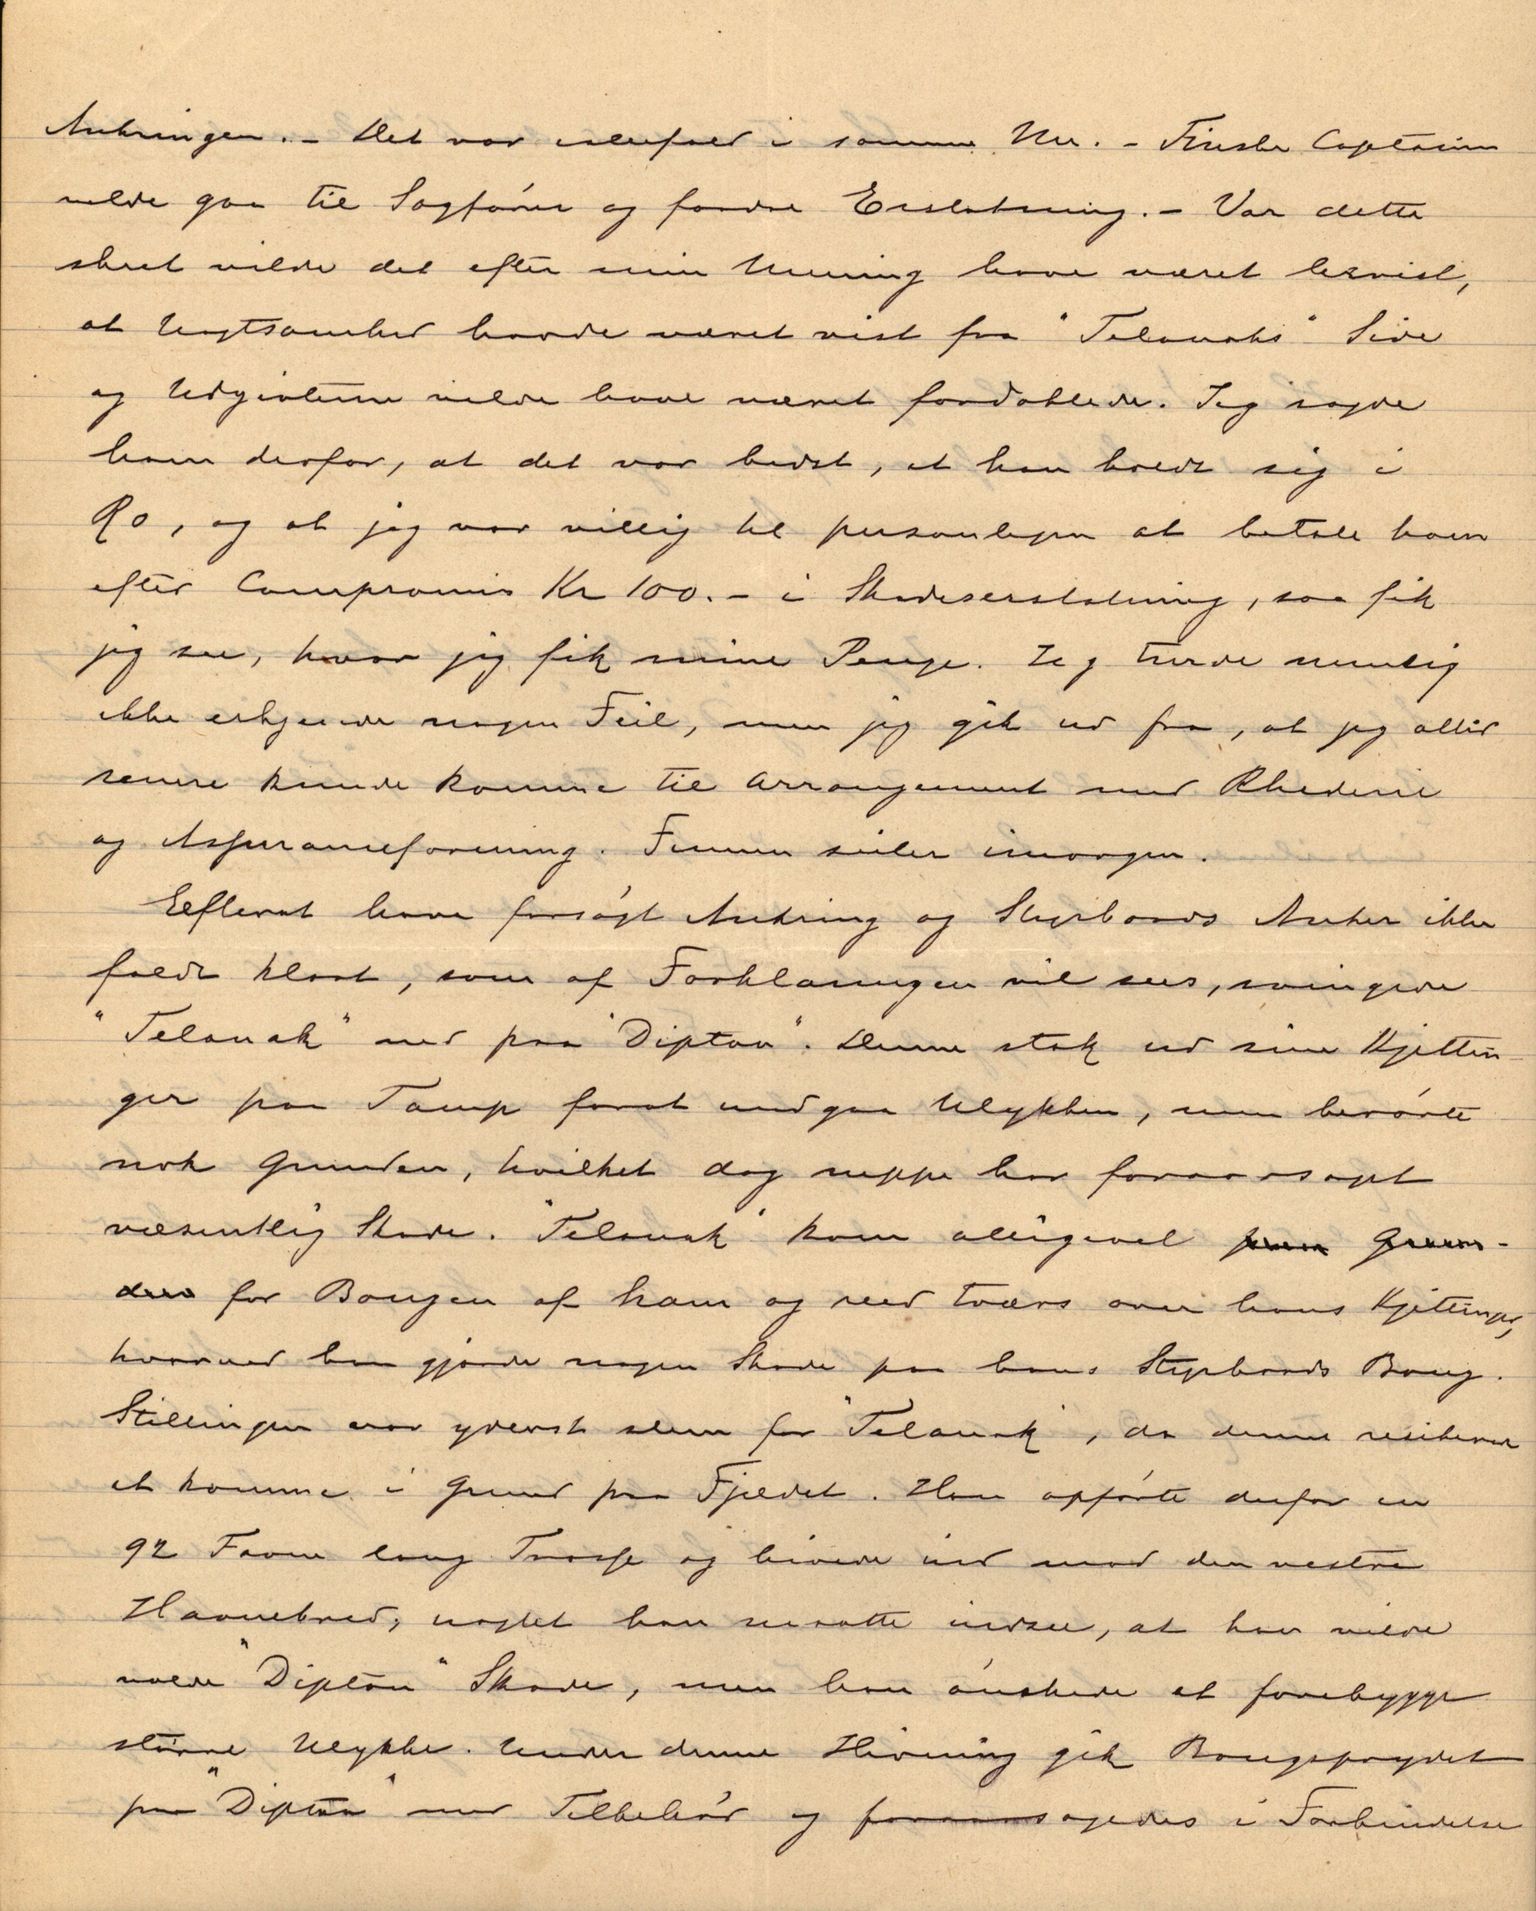 Ankringen. – Det var ialfald i samme Nu. – Finske Captainen
vilde gaa til Sagfører og fordre Erstatning. – Var dette
skeet vilde det efter min Mening have været bevist,
at Uagtsomhed havde været vist fra "Telanaks" Side
og Udgivterne vilde have været fordoblede. Jeg sagde
ham derfor, at det var bedst, at han holdt sig i
Ro, og at jeg var villig til personligen at betale ham
efter Compromis Kr 100. – i Skadeserstatning, saa fik
jeg see, hvor jeg fik mine Penge. Jeg turde nemlig
ikke erkjende nogen Feil, men jeg gik ud fra, at jeg altid
senere kunde komme til Arrangement med Rhederie
og Assuranceforening. Finnen seiler imorgen.
Efterat have forsøgt Ankring og Styrbords Anker ikke
faldt klart, som af Forklaringen vil sees, svingede
"Telanak" ned paa "Dipton". Denne stak ud sine Kjettin-
ger paa Tamp forat undgaa Ulykken, men berørte
nok Grunden, hvilket dog neppe har foraarsaget
væsentlig Skade. "Telanak" kom alligevel paa Grun-
den for Bougen af ham og red tvers over hans Kjettinger,
hvorved han gjorde nogen Skade paa hans Styrbords Boug.
Stillingen var yderst slem for "Telanak", da denne risikerede
at komme i Grund paa Fjeldet. Han opførte derfor en
92 Favne lang Trosse og hivede ind mod den vestre
Havnebred, uagtet han maatte indsee, at han vilde
volde "Dipton" Skade, men han ønskede at forebygge
større Ulykke. Under denne Hivning gik Bougspydet
paa "Dipton" med Tilbehør og foraarsagedes i Forbindelse